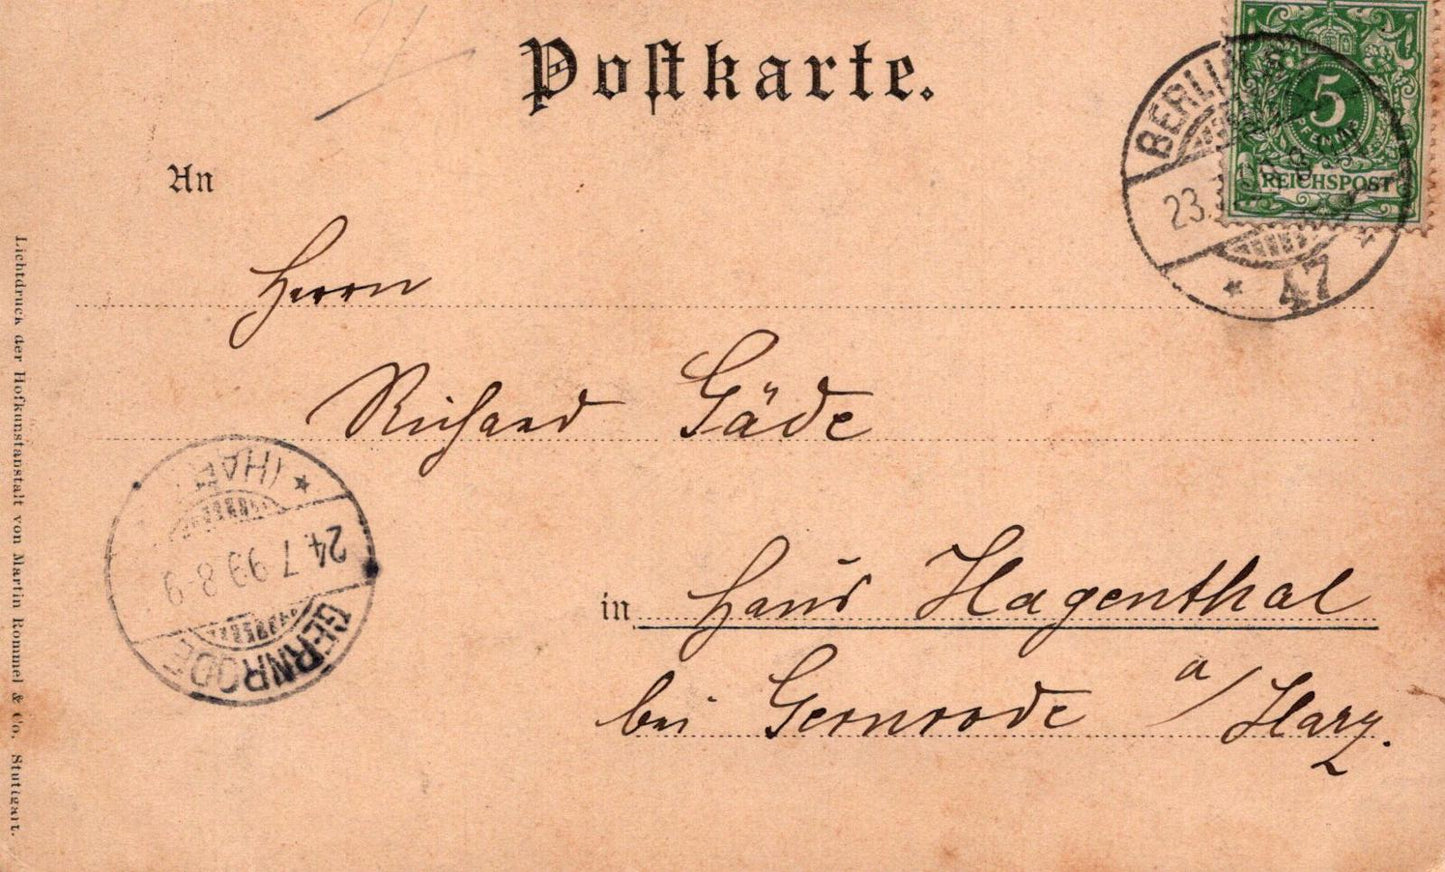 Postkarte.
5
PFENNIG
REICHSPOST
BERLIN
23.
47
An
Herrn
Richard Gäde
in Haus Hagenthal
bei Gernrode a/Harz.
GERNRODE
24.7.99.8-9
(HARZ)
Lichtdruck der Hofkunstanstalt von Martin Rommel & Co. Stuttgart.